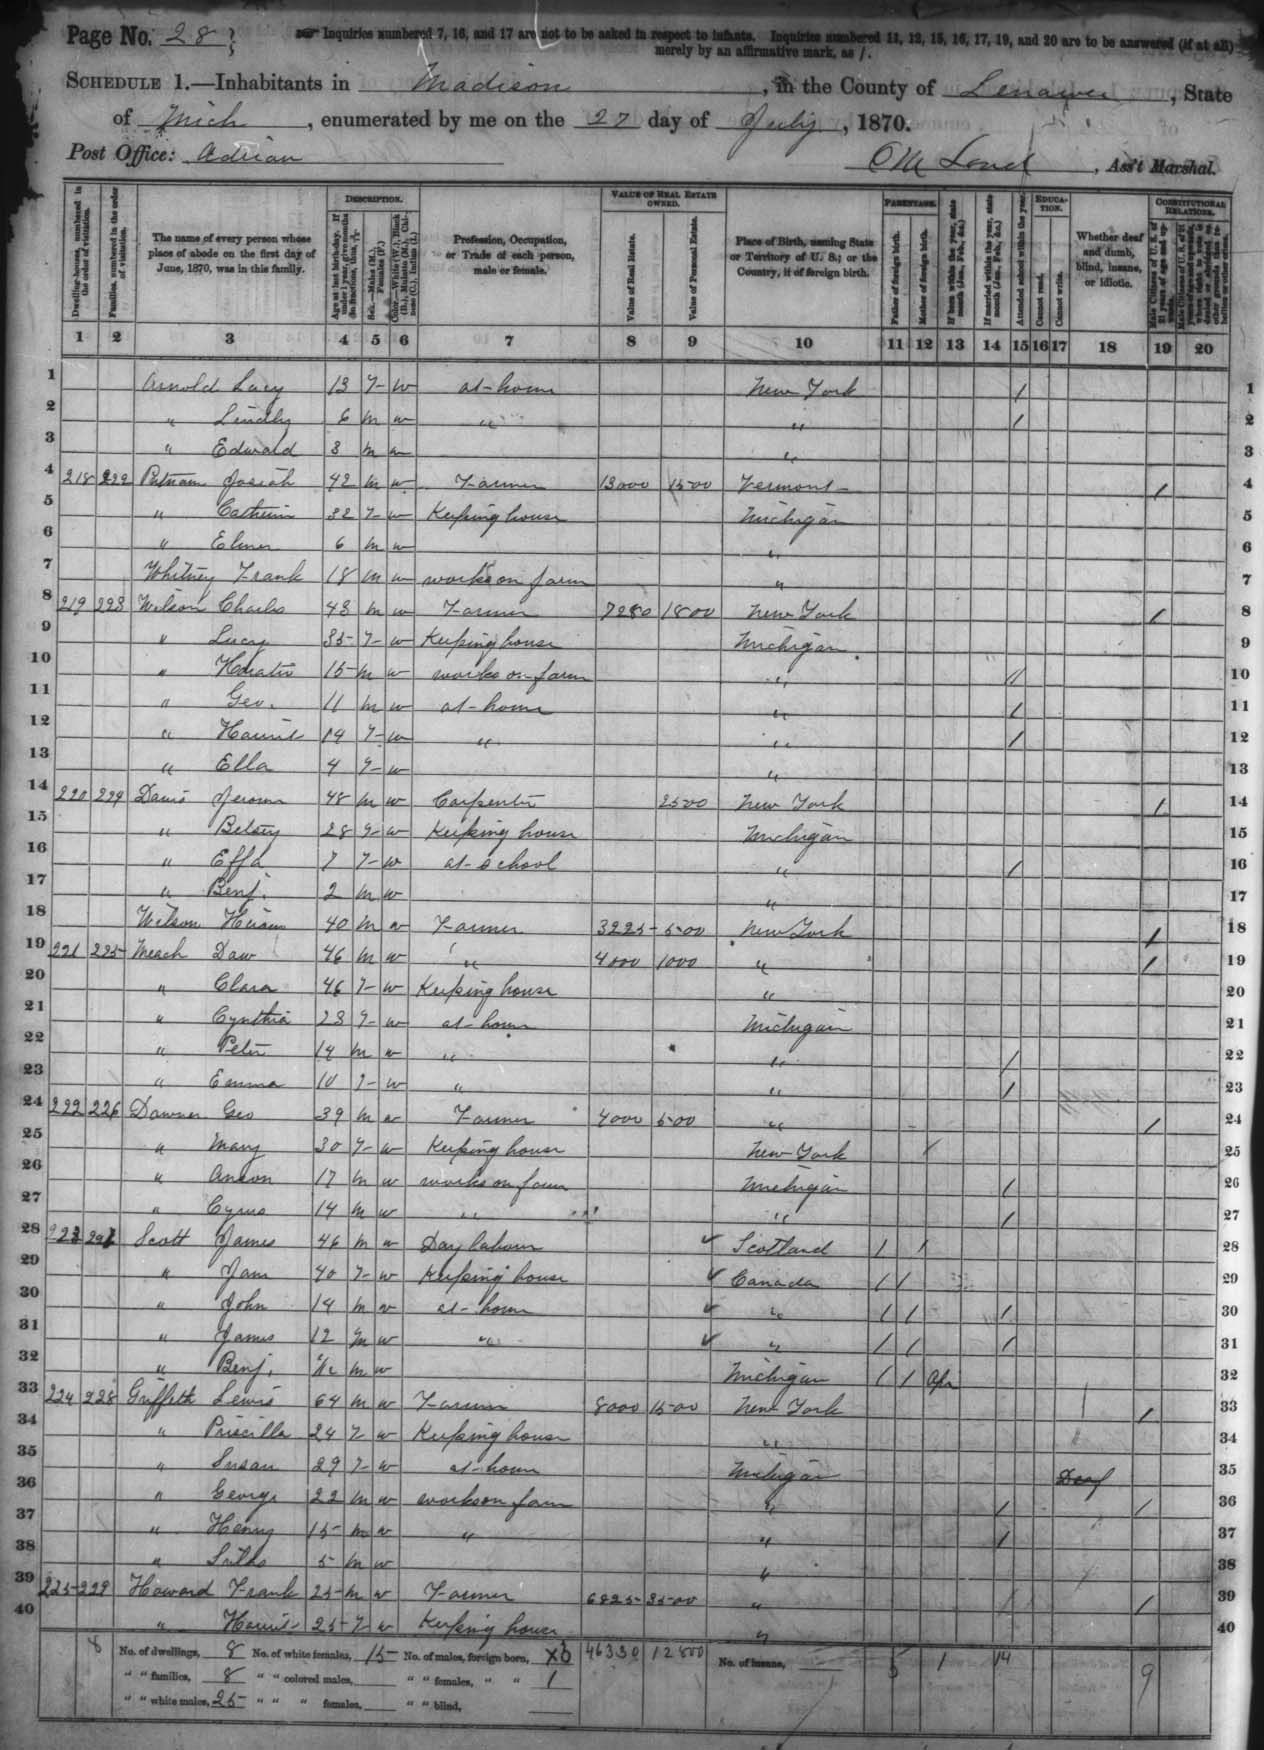 Page No. 28
Inquiries numbered 7, 16, and 17 are not to be asked in respect to infants. Inquiries numbered 11, 12, 15, 16, 17, 19, and 20 are to be answered (if at all)
merely by an affirmative mark, as /.
SCHEDULE 1.—Inhabitants in Madison, in the County of Lenawee, State
of Mich, enumerated by me on the 27 day of July, 1870.
Post Office: Adrian
, Ass't Marshal.
Dwelling-houses, numbered in the order of visitation.
Families, numbered in the order of visitation.
The name of every person whose place of abode on the first day of June, 1870, was in this family.
DESCRIPTION.
Age at last birth-day. If under 1 year, give months in fractions, thus, 3/12
Sex.—Males (M.), Females (F.)
Color.—White (W.), Black (B.), Mulatto (M.), Chinese (C.), Indian (I.)
Profession, Occupation, or Trade of each person, male or female.
VALUE OF REAL ESTATE OWNED.
Value of Real Estate.
Value of Personal Estate.
Place of Birth, naming State or Territory of U. S.; or the Country, if of foreign birth.
PARENTAGE.
Father of foreign birth.
Mother of foreign birth.
If born within the year, state month (Jan., Feb., &c.)
If married within the year, state month (Jan., Feb., &c.)
EDUCATION.
Attended school within the year.
Cannot read.
Cannot write.
Whether deaf and dumb, blind, insane, or idiotic.
CONSTITUTIONAL RELATIONS.
1 2 3 4 5 6 7 8 9 10 11 12 13 14 15 16 17 18 19 20
1 Arnold Lucy 13 F W at home New York / 1
2 " Lindly 6 M W " " / 2
3 " Edward 3 M W " 3
4 218 222 Putnam Josiah 42 M W Farmer 13000 1500 Vermont / 4
5 " Catherin 32 F W Keeping house Michigan 5
6 " Elmer 6 M W " 6
7 Whitney Frank 18 M W works on farm " 7
8 219 223 Wilson Charles 43 M W Farmer 7280 1800 New York / 8
9 " Lucy 35 F W Keeping house Michigan 9
10 " Horatio 15 M W works on farm " / 10
11 " Geo. 11 M W at home " / 11
12 " Harriet 14 F W " " / 12
13 " Ella 4 F W " 13
14 220 224 Davis Jerome 48 M W Carpenter 2500 New York / 14
15 " Betsey 28 F W Keeping house Michigan 15
16 " Effa 7 F W at school " / 16
17 " Benj. 2 M W " 17
18 Wilson Hiram 40 M W Farmer 3225 500 New York / 18
19 221 225 Meach Daw 46 M W " 4000 1000 " / 19
20 " Clara 46 F W Keeping house " 20
21 " Cynthia 23 F W at home Michigan 21
22 " Peter 14 M W " " / 22
23 " Emma 10 F W " " / 23
24 222 226 Downer Geo 39 M W Farmer 4000 500 " / 24
25 " Mary 30 F W Keeping house New York / 25
26 " Anson 17 M W works on farm Michigan / 26
27 " Cyrus 14 M W " " / 27
28 223 227 Scott James 46 M W Day labour ✓ Scotland / / 28
29 " Jane 40 F W Keeping house ✓ Canada / / 29
30 " John 14 M W at home ✓ " / / / 30
31 " James 12 M W " ✓ " / / / 31
32 " Benj. M W Michigan / / Apr 32
33 224 228 Griffeth Lewis 64 M W Farmer 8000 1500 New York / 33
34 " Priscilla 24 F W Keeping house " 34
35 " Susan 29 F W at home Michigan Deaf 35
36 " George 22 M W works on farm " / / 36
37 " Henry 15 M W " " / 37
38 " 5 M W " 38
39 225 229 Howard Frank 25 M W Farmer 6825 3500 " / 39
40 " Harriet 25 F W Keeping house " 40
8 No. of dwellings, 8 No. of white females, 15 No. of males, foreign born, 3 46330 12800 No. of insane, 5 1 14 9
" " families, 8 " " colored males, " " females, " " 1
" " white males, 25 " " " females, " " blind,